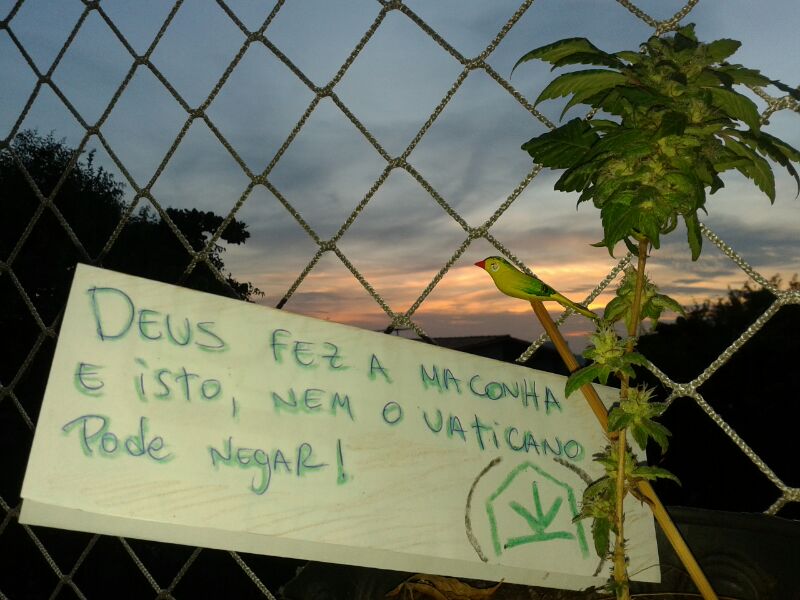 DEUS FEZ A MACONHA
E iSTO, NEM O VATiCANO
Pode NEGAR!